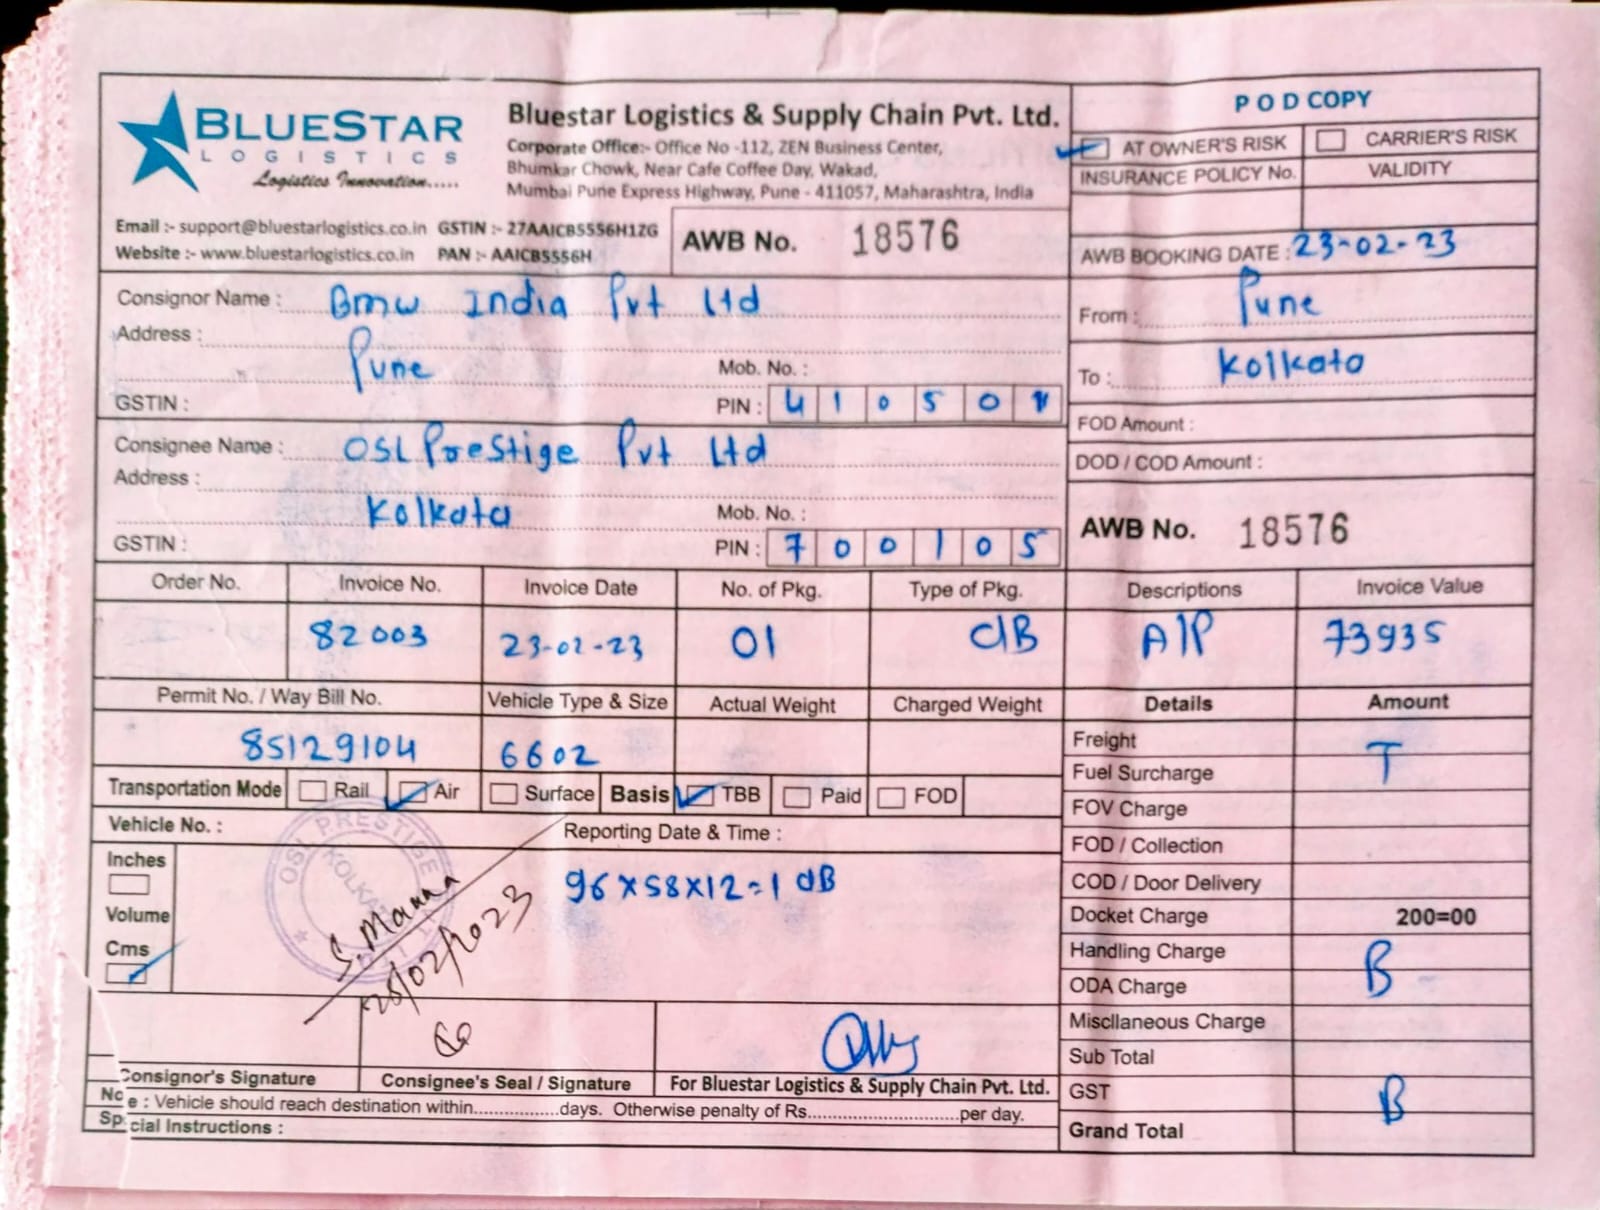 BLUESTAR
LOGISTICS
Logistics Innovation.....
Bluestar Logistics & Supply Chain Pvt. Ltd.
Corporate Office:- Office No -112, ZEN Business Center,
Bhumkar Chowk, Near Cafe Coffee Day, Wakad,
Mumbai Pune Express Highway, Pune - 411057, Maharashtra, India
Email :- support@bluestarlogistics.co.in GSTIN :- 27AAICB5556H1ZG
Website :- www.bluestarlogistics.co.in PAN :- AAICB5556H
AWB No. 18576
POD COPY
AT OWNER'S RISK CARRIER'S RISK
INSURANCE POLICY No. VALIDITY
AWB BOOKING DATE : 23-02-23
Consignor Name : Bmw India Pvt Ltd
Address :
Pune
Mob. No. :
GSTIN :
PIN : 41050
From : Pune
To : Kolkata
FOD Amount :
DOD / COD Amount :
Consignee Name : OSL Prestige Pvt Ltd
Address :
Kolkata
Mob. No. :
GSTIN :
PIN : 700105
AWB No. 18576
Order No. Invoice No. Invoice Date No. of Pkg. Type of Pkg. Descriptions Invoice Value
82003 23-02-23 01 CIB A/P 73935
Permit No. / Way Bill No. Vehicle Type & Size Actual Weight Charged Weight Details Amount
85129104 6602
Transportation Mode Rail Air Surface Basis TBB Paid FOD
Vehicle No. :
Reporting Date & Time :
Inches
Volume
Cms
96×58×12=1 CIB
OSL PRESTIGE
KOLKATA
S. Manna
28/02/2023
Freight
T
Fuel Surcharge
FOV Charge
FOD / Collection
COD / Door Delivery
Docket Charge 200=00
Handling Charge
B
ODA Charge
Miscllaneous Charge
Sub Total
GST
B
Grand Total
Consignor's Signature Consignee's Seal / Signature For Bluestar Logistics & Supply Chain Pvt. Ltd.
e : Vehicle should reach destination within.................days. Otherwise penalty of Rs.............................per day.
cial Instructions :